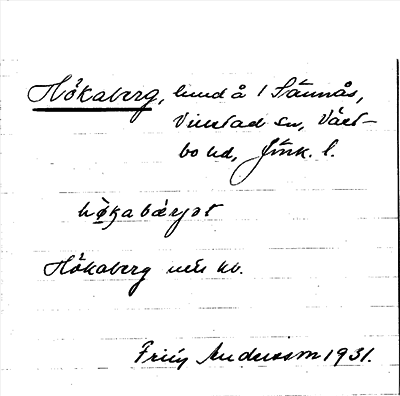 Hökaberg, lund å 1 Sånnås,
Virestad sn, Väst-
bo hd, Jönk. l.
hø̀kabærjət
Hökaberg
Andersson 1931.